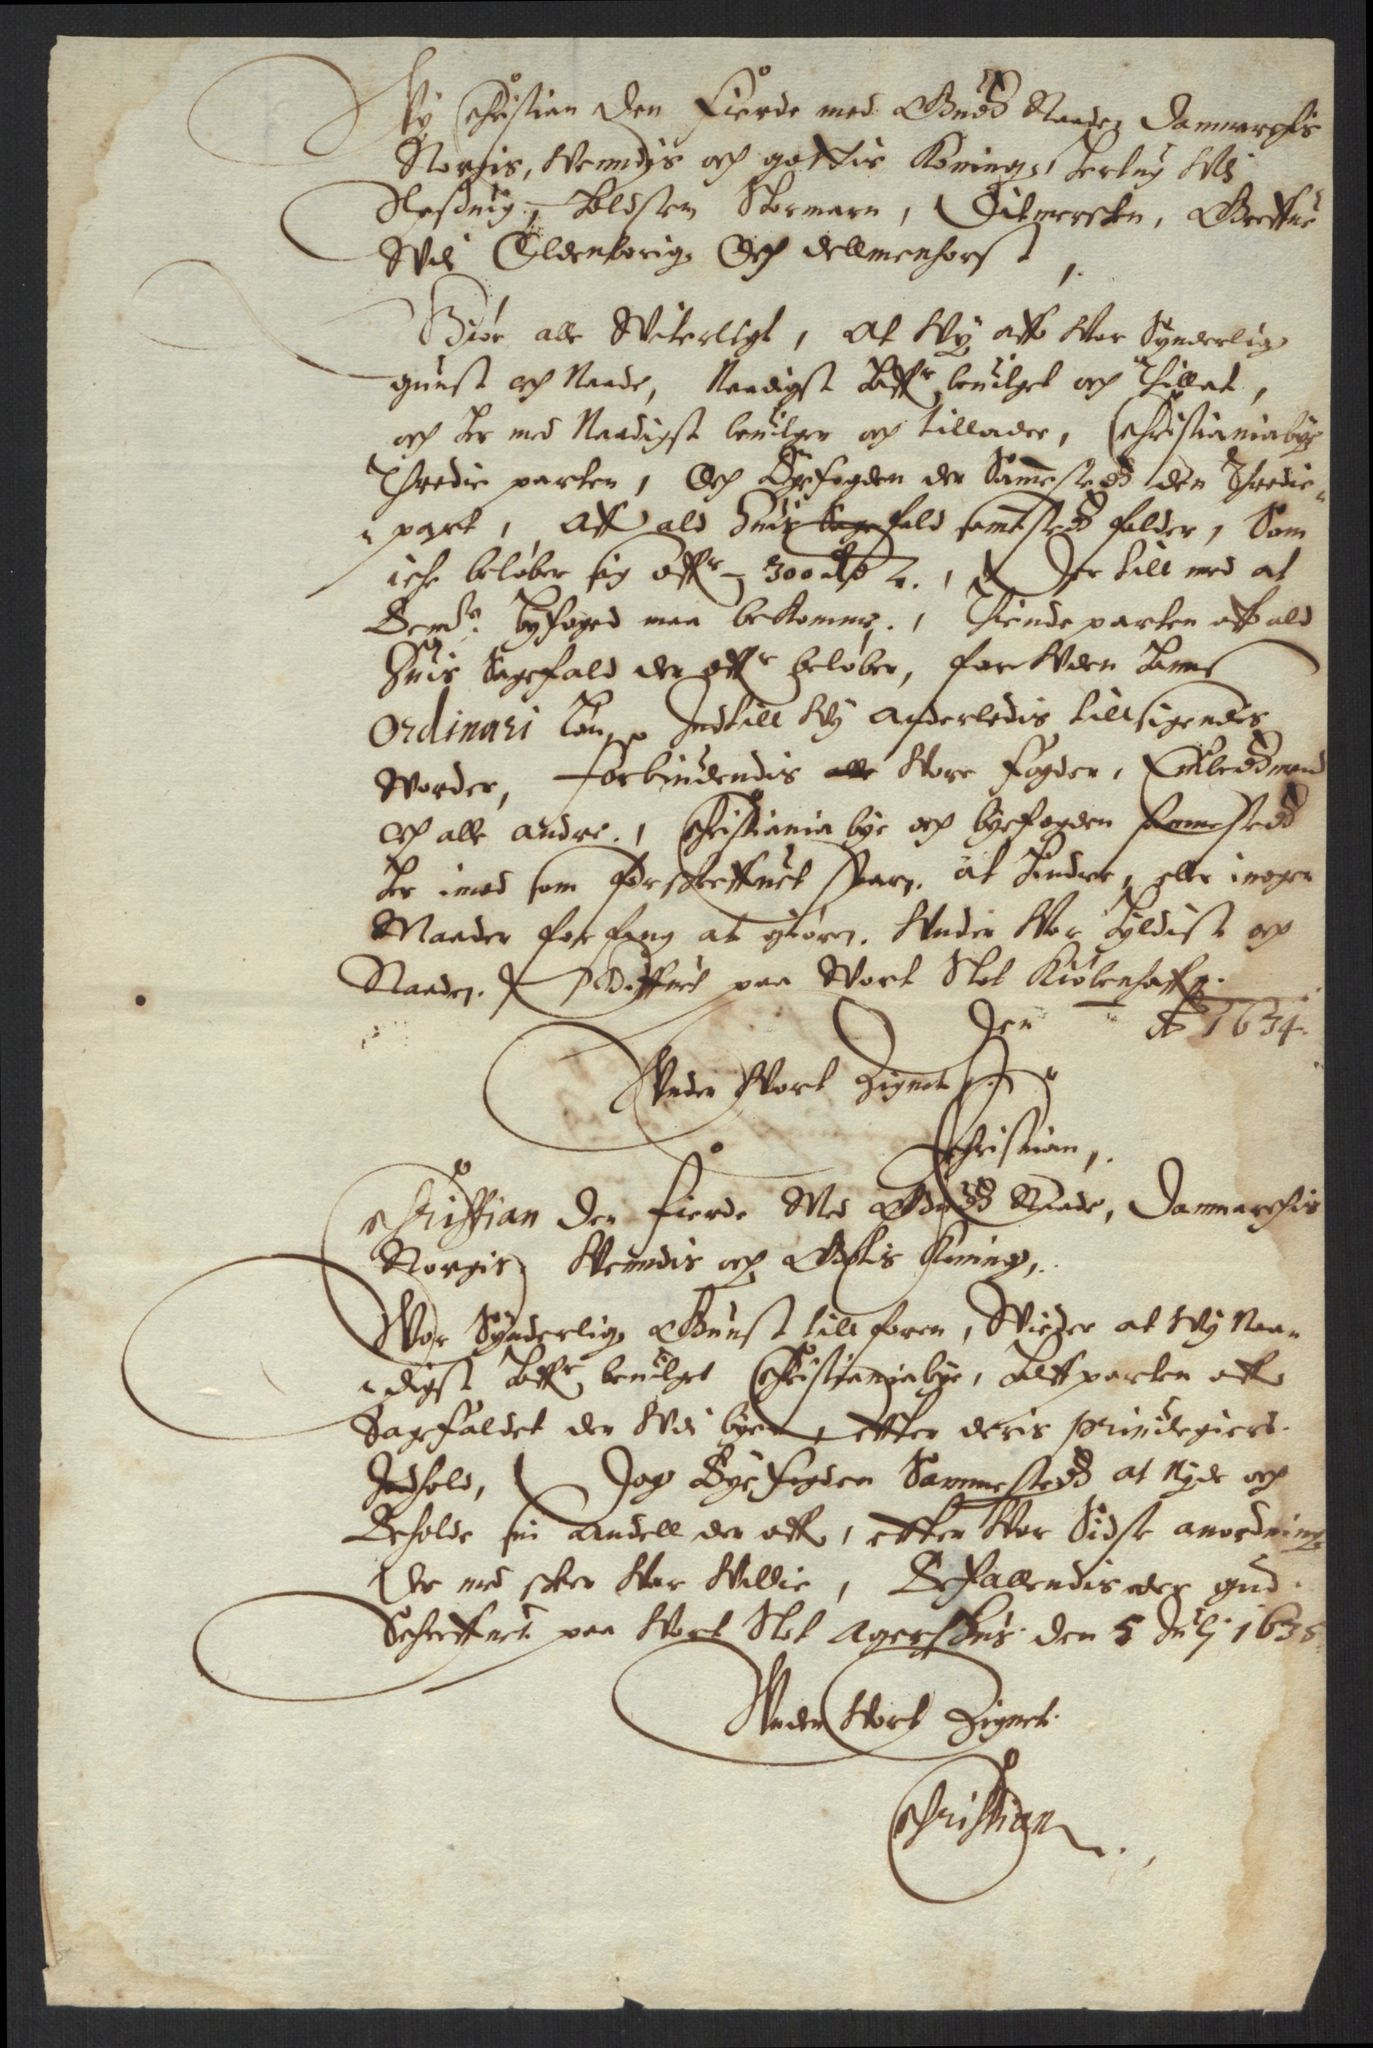 Wy Christian den Fierde med Guds Naade, Danmarchis
Norgis, Wendis och gottis Koning, Hertug Udi
Slesuig, Holdsten Stormarn, Ditmersken, Greffue
Udi Oldenborig Och dellmenhorst,
Giøre alle Witerligt, at Wy aff Wor Synderlig
gunst och Naade, Naadigst haffr beuilget och Thillat,
och her med Naadigst beuilger och tillader, Christianiabye
Thredie parten, Och Byefogden der Sammestedz den Thredie
part, Aff ald huis Sagefald samestedz falder, Som
iche beløber sig offr 300 dlr, Der till med at
Bemte. byfoged maa bekomme, Thiende parten aff ald
huis Sagefald der offr beløber, for Uden hans
Ordinari Løn, Indtill Wy anderledis tillsigendes
Worder, forbiudendis alle Wore Fogder, Embedzmend
och alle andre, Christiania bye och byefogden samestedz
her imod som forschreffuet staar, at hindre, eller i noger
Maader forfang at giøre, Under Wor hyldist och
Naade. Schreffuet paa Wort Slot Kiøbenhaffn.
Den Ao 1634.
Under Wort Zignet
Christian,
Christian den Fierde Med Guds Naade, Danmarchis
Norgis, Wendis och Gottis Koning,
Wor Synderlig Gunst tillforen, Wider at Wy Naa-
digst haffr beuilget Christianiabye, halffparten aff
Sagefaldet der Udi byen, effter deris priuilegiers
Indhold, Dog Byefogden Sammestedz at Nyde och
Beholde sin andell der aff, effter Wor Sidste anordning
Der med skeer Wor Willie, Befallendis eder gud.
Schreffuet paa Wort Slot Agershus den 5 Julij 1635
Under Wort Zignet
Christian